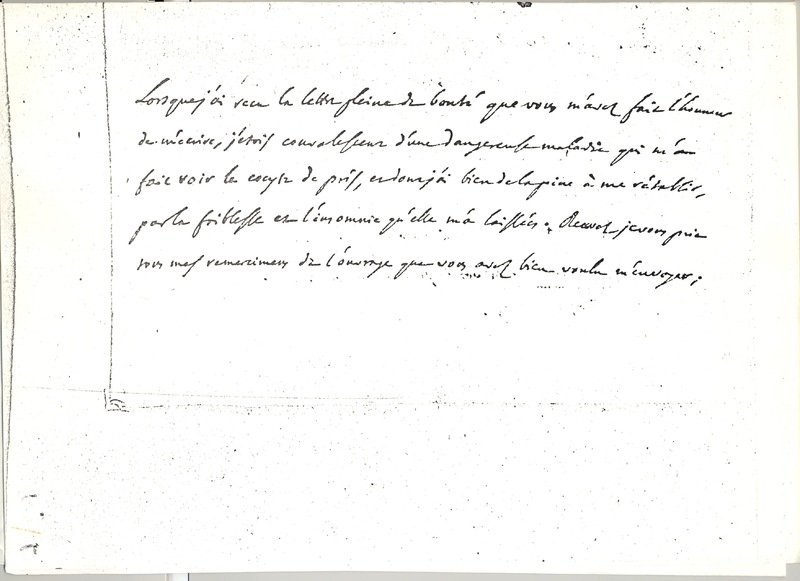 Lorsque j'ai recu la lettre pleine de bonté que vous m'avez fait l'honneur
de m'écrire, j'etois convalescent d'une dangereuse maladie qui m'a
fait voir le cocyte de près, et dont j'ai bien de la peine à me rétablir,
par la foiblesse et l'insomnie qu'elle m'a laissées. Recevez, je vous prie
tous mes remerciemens de l'ouvrage que vous avez bien voulu m'envoyer;